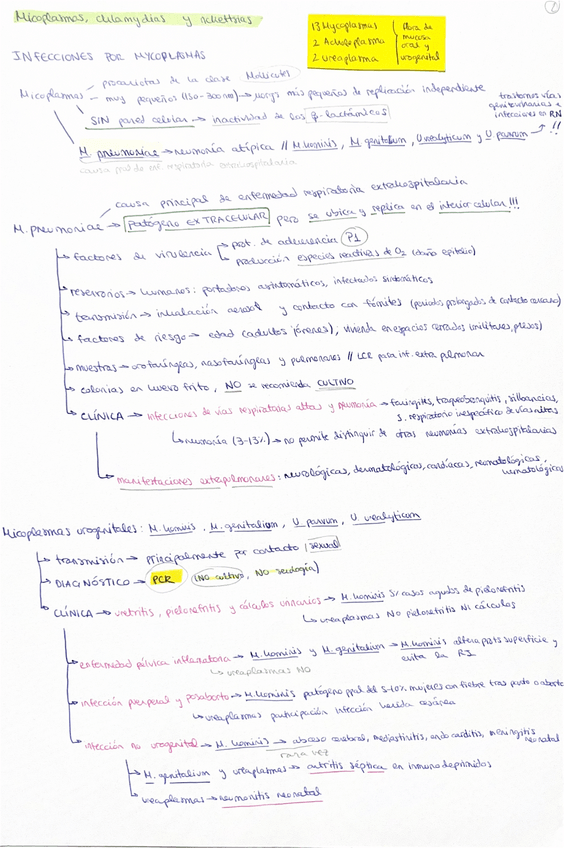 Micoplasmas, chlamydias y rickettsias
13 Mycoplasmas
2 Acholeplasma
2 ureaplasma
flora de mucosa oral y urogenital
INFECCIONES POR MYCOPLASMAS
procariotas de la clase Mollicutes
Micoplasmas — muy pequeños (150-300nm) → uorgs más pequeños de replicación independiente
SIN pared celular → inactividad de los β-lactámicos
trastornos vías genitourinarias e infecciones en RN !!
M. pneumoniae → neumonía atípica // M. hominis, M. genitalium, U urealyticum y U parvum
causa ppal de enf. respiratoria extrahospitalaria
causa principal de enfermedad respiratoria extrahospitalaria
M. pneumoniae → patógeno EXTRACELULAR pero se ubica y replica en el interior celular!!!
factores de virulencia
prot. de adherencia P1
producción especies reactivas de O2 (daño epitelio)
reservorios → humanos: portadores asintomáticos, infectados sintomáticos
transmisión → inhalación aerosol y contacto con fómites (periodos prolongados de contacto cercano)
factores de riesgo → edad (adultos jóvenes), vivienda en espacios cerrados (militares, presos)
muestras → orofaríngeas, nasofaríngeas y pulmonares // LCR para inf. extra pulmonar
colonias en huevo frito, NO se recomienda CULTIVO
CLÍNICA → infecciones de vías respiratorias altas y neumonía → faringitis, traqueobronquitis, sibilancias,
S. respiratorio inespecífico de vías altas
neumonía (3-13%) → no permite distinguir de otras neumonías extrahospitalarias
manifestaciones extrapulmonares: neurológicas, dermatológicas, cardíacas, reumatológicas,
hematológicas
Micoplasmas urogenitales: M. hominis, M. genitalium, U parvum, U urealyticum
transmisión → principalmente por contacto sexual
DIAGNÓSTICO → PCR (NO cultivo, NO serología)
CLÍNICA → uretritis, pielonefritis y cálculos urinarios → M. hominis SI casos agudos de pielonefritis
ureaplasmas NO pielonefritis NI cálculos
enfermedad pélvica inflamatoria → M. hominis y M. genitalium → M. hominis altera prots superficie y
evita la RI
ureaplasmas NO
infección puerperal y posaborto → M. hominis patógeno ppal del 5-10% mujeres con fiebre tras parto o aborto
ureaplasmas participación infección herida cesárea
infección no urogenital → M. hominis → absceso cerebral, mediastinitis, endocarditis, meningitis neonatal
rara vez
M. genitalium y ureaplasmas → artritis séptica en inmunodeprimidos
ureaplasmas → neumonitis neonatal